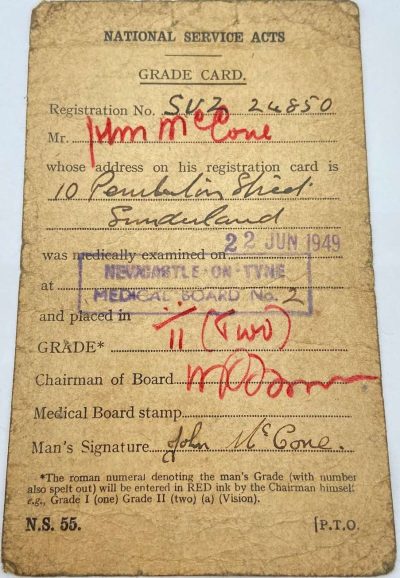 NATIONAL SERVICE ACTS
GRADE CARD.
Registration No. SUZ 24850
Mr. John McCone
whose address on his registration card is
10 Pemberton Street
Sunderland
was medically examined on 22 JUN 1949
NEWCASTLE-ON-TYNE
at
MEDICAL BOARD No. 2
and placed in
GRADE* ii (Two)
Chairman of Board
Medical Board stamp
Man's Signature John McCone.
*The roman numeral denoting the man's Grade (with number
also spelt out) will be entered in RED ink by the Chairman himself
e.g., Grade I (one) Grade II (two) (a) (Vision).
N.S. 55. [P.T.O.